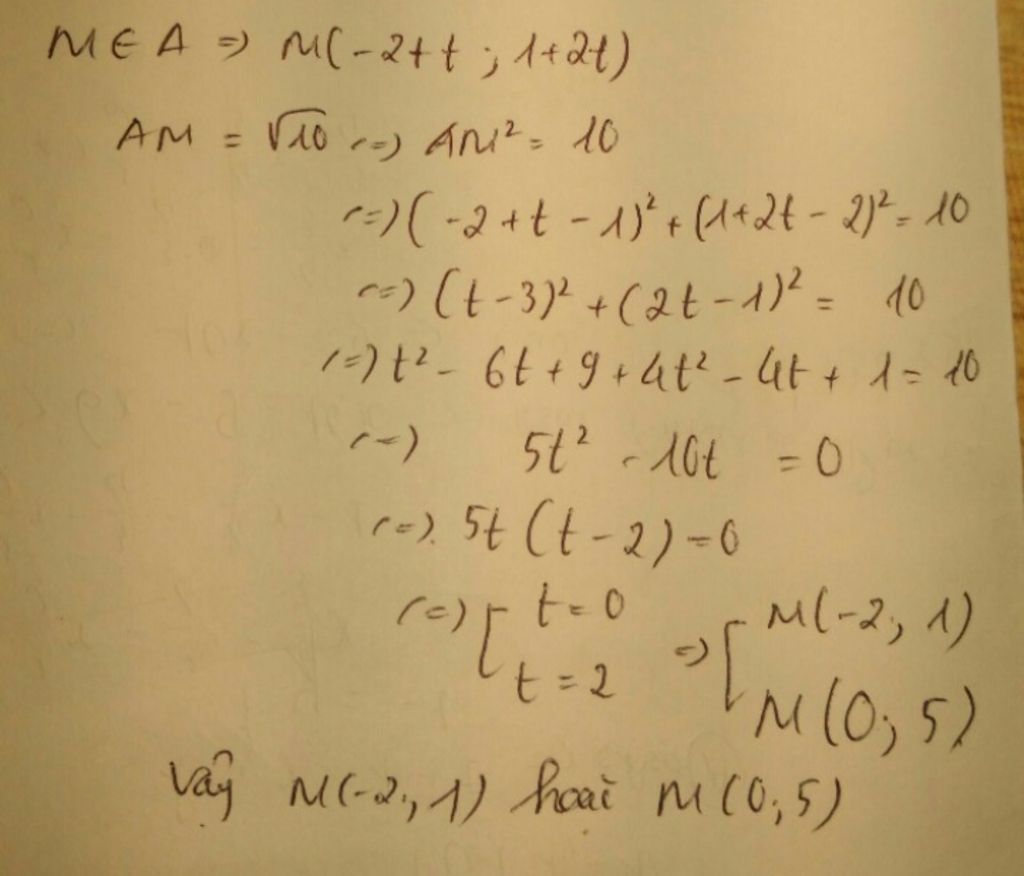 M ∈ Δ => M(-2+t ; 1+2t)
AM = √10 <=> AM² = 10
<=> (-2+t-1)² + (1+2t-2)² = 10
<=> (t-3)² + (2t-1)² = 10
<=> t² - 6t + 9 + 4t² - 4t + 1 = 10
<=> 5t² - 10t = 0
<=> 5t (t-2) = 0
<=> [ t = 0 => [ M(-2; 1)
t = 2 M(0; 5)
Vậy M(-2; 1) hoặc M(0; 5)